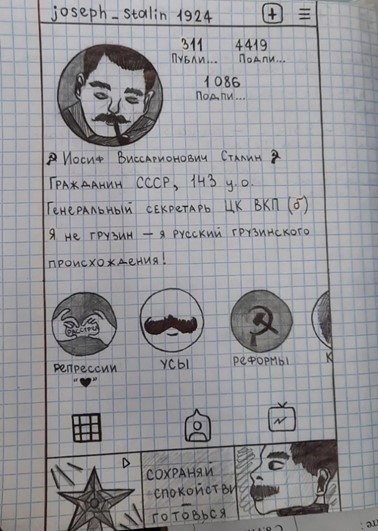 joseph_stalin 1924
311 4419
ПУБЛИ... ПОДПИ...
1 086
ПОДПИ...
Иосиф Виссарионович Сталин
Гражданин СССР, 143 y.o.
Генеральный секретарь ЦК ВКП (б)
Я не грузин – я русский грузинского
происхождения!
РАССТРЕЛ
РЕПРЕССИИ УСЫ РЕФОРМЫ К
"♥"
СОХРАНЯЙ
СПОКОЙСТВИ
ГОТОВЬСЯ